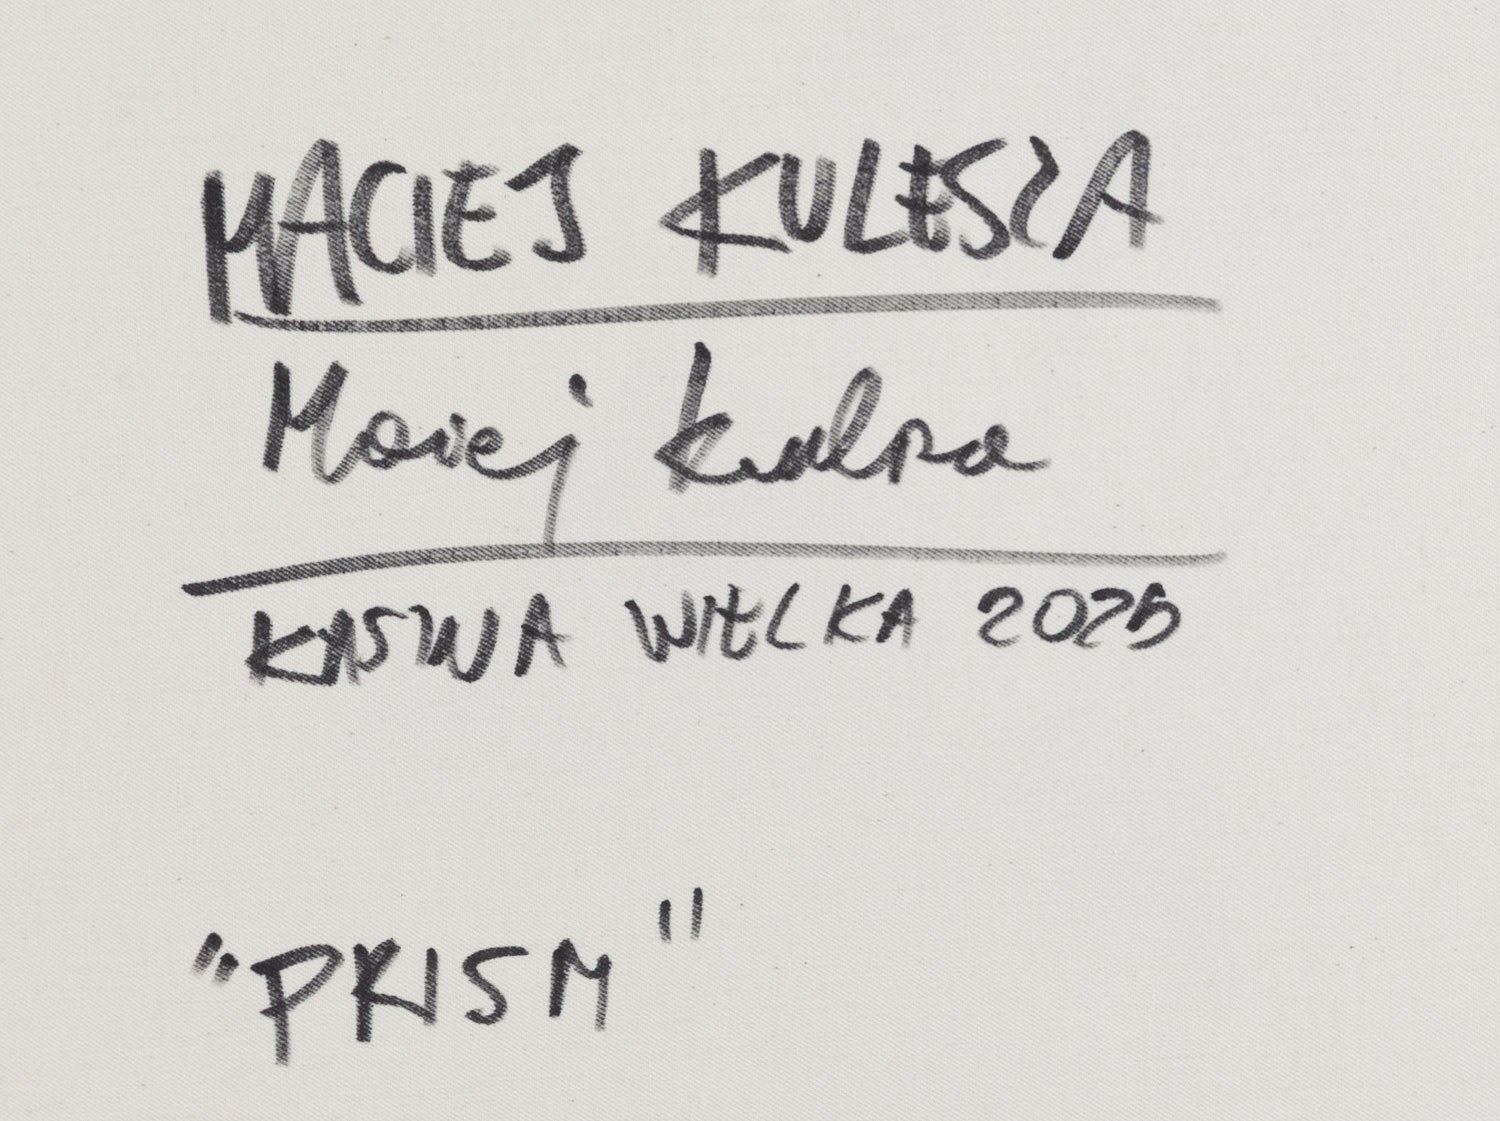 MACIEJ KULESZA
Maciej Kulesza
KASINA WIELKA 2025
"PRISM"